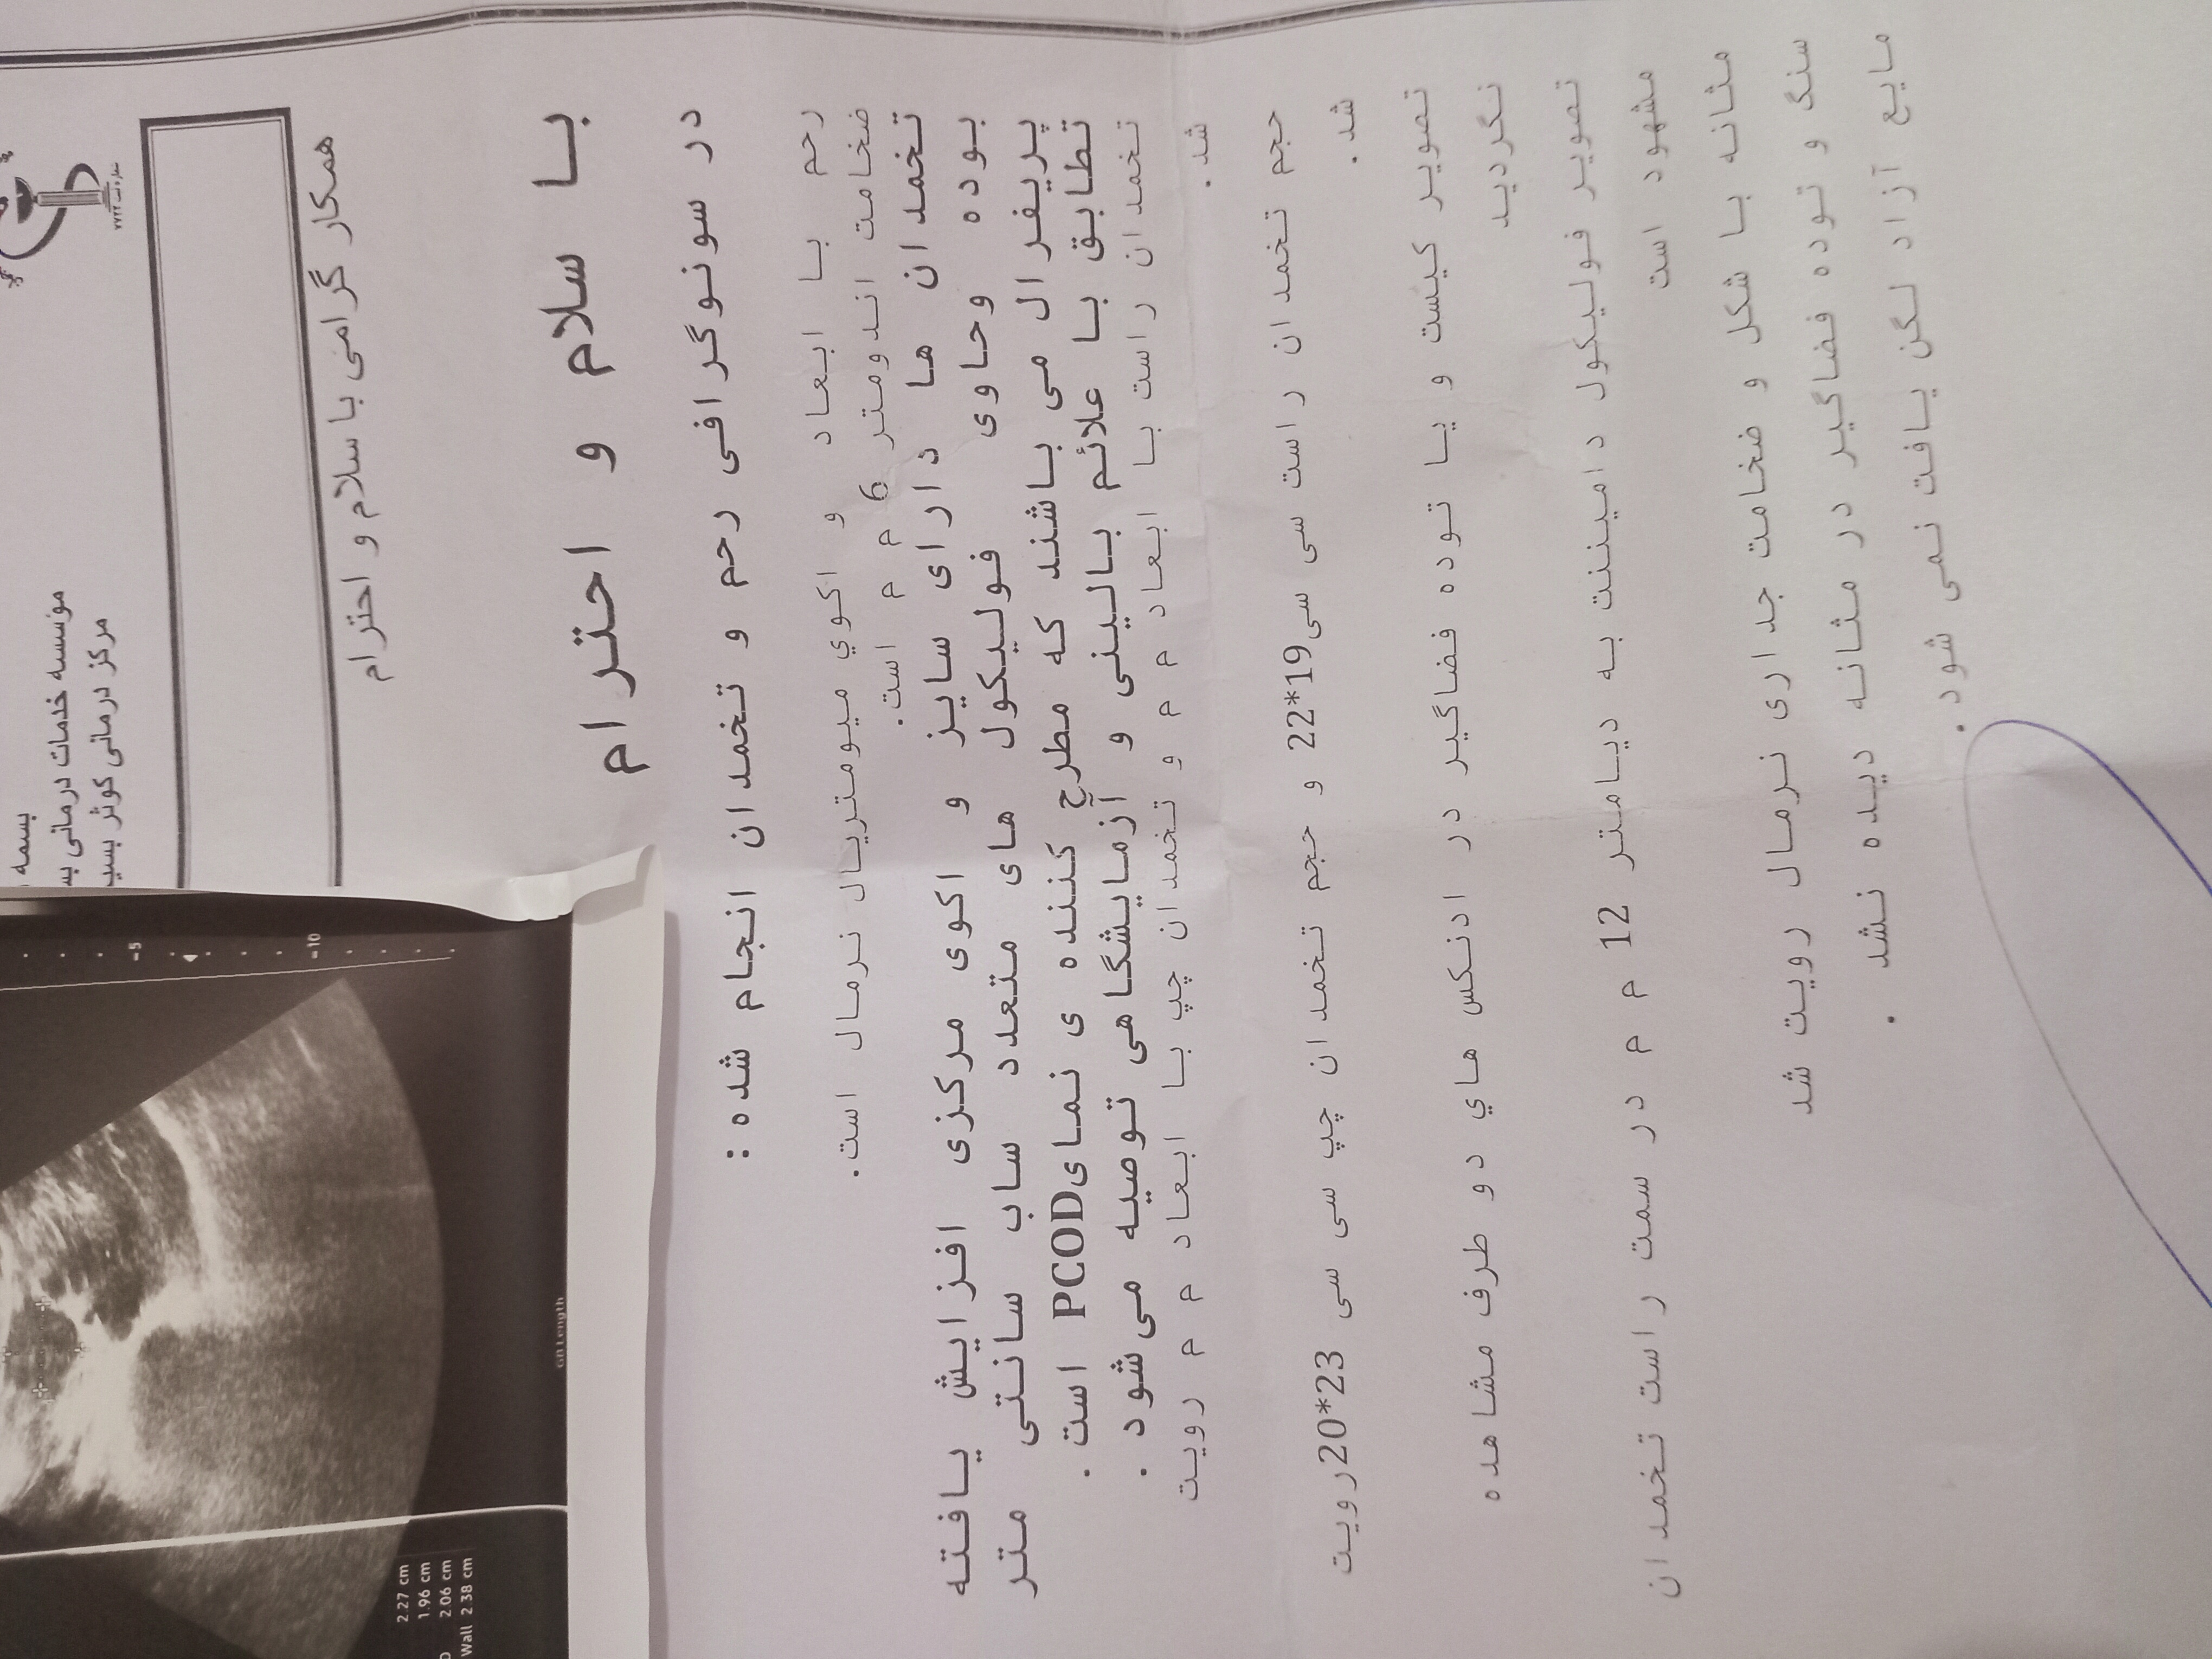 بسمه
مؤسسه خدمات درمانی
مرکز درمانی کوثر
همکار گرامی با سلام و احترام
با سلام و احترام
در سونوگرافی رحم و تخمدان انجام شده :
رحم با ابعاد و اکوي میومتریال نرمال است.
ضخامت اندومتر 6 م م است.
تخمدان ها دارای سایز و اکوی مرکزی افزایش یافته
بوده وحاوی فولیکول های متعدد ساب سانتی متر
پریفرال می باشند که مطرح کننده ی نمایPCOD است .
تطابق با علائم بالینی و آزمایشگاهی توصیه می شود .
تخمدان راست با ابعاد م م و تخمدان چپ با ابعاد م م رویت
شد .
حجم تخمدان راست سی سی19*22 و حجم تخمدان چپ سی سی 23*20رویت
شد .
تصویر کیست و یا توده فضاگیر در ادنکس هاي دو طرف مشاهده
نگردید
تصویر فولیکول دامیننت به دیامتر 12 م م در سمت راست تخمدان
مشهود است
مثانه با شکل و ضخامت جداری نرمال رویت شد
سنگ و توده فضاگیر در مثانه دیده نشد .
مایع آزاد لگن یافت نمی شود .
-5
-10
GB Length
2.27 cm
1.96 cm
2.06 cm
Wall 2.38 cm